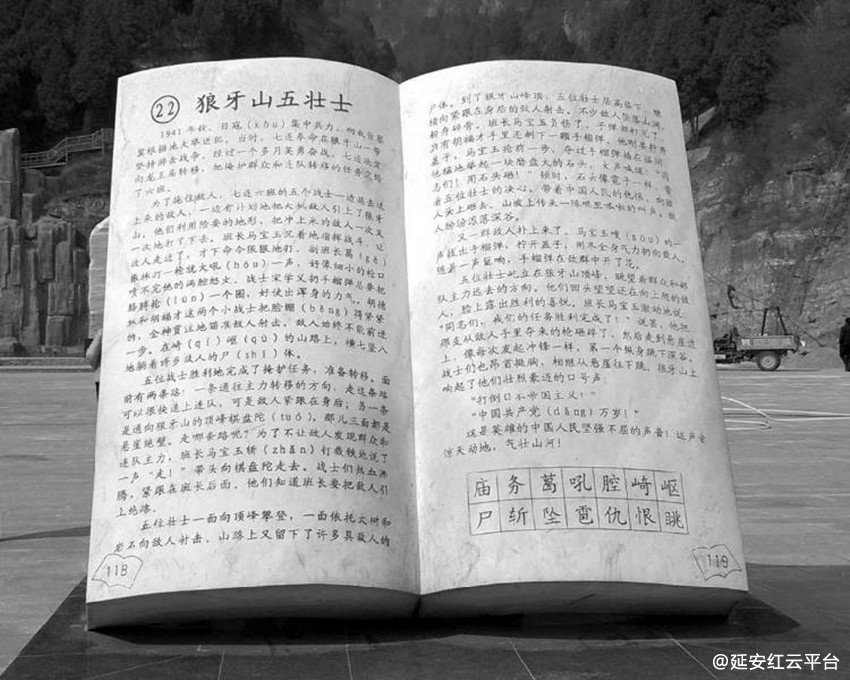 22 狼牙山五壮士
1941年秋,日寇(kòu)集中兵力,向我晋察
冀根据地大举进犯。当时,七连奉命在狼牙山一带
坚持游击战争。经过一个多月英勇奋战,七连决定
向龙王庙转移,把掩护群众和连队转移的任务交给
了六班。
为了拖住敌人,七连六班的五个战士一边痛击追
上来的敌人,一边有计划地把大批敌人引上了狼牙
山。他们利用险要的地形,把冲上来的敌人一次又
一次地打了下去。班长马宝玉沉着地指挥战斗,让
敌人走近了,才下命令狠狠地打。副班长葛(gě)
振林打一枪就大吼(hǒu)一声,好像细小的枪口
喷不完他的满腔怒火。战士宋学义扔手榴弹总要把
胳膊抡(lūn)一个圈,好使出浑身的力气。胡德
林和胡福才这两个小战士把脸绷(běng)得紧紧
的,全神贯注地瞄准敌人射击。敌人始终不能前进
一步。在崎(qí)岖(qū)的山路上,横七竖八
地躺着许多敌人的尸(shī)体。
五位战士胜利地完成了掩护任务,准备转移。面
前有两条路:一条通往主力转移的方向,走这条路
可以很快追上连队,可是敌人紧跟在身后;另一条
是通向狼牙山的顶峰棋盘陀(tuó),那儿三面都是
悬崖绝壁。走哪条路呢?为了不让敌人发现群众和
连队主力,班长马宝玉斩(zhǎn)钉截铁地说了
一声“走!”带头向棋盘陀走去。战士们热血沸
腾,紧跟在班长后面。他们知道班长要把敌人引
上绝路。
五位壮士一面向顶峰攀登,一面依托大树和
岩石向敌人射击。山路上又留下了许多具敌人的
118
尸体。到了狼牙山峰顶,五位壮士居高临下,继
续向紧跟在身后的敌人射击。不少敌人坠落山涧,
粉身碎骨。班长马宝玉负伤了,子弹都打完了,
只有胡福才手里还剩下一颗手榴弹,他刚要拧开
盖子,马宝玉抢前一步,夺过手榴弹插在腰间,
他猛地举起一块磨盘大的石头,大声喊道:“同
志们!用石头砸!”顿时,石头像雹子一样,带
着五位壮士的决心,带着中国人民的仇恨,向敌
人头上砸去。山坡上传来一阵叽里呱啦的叫声,敌
人纷纷滚落深谷。
又一群敌人扑上来了。马宝玉嗖(sōu)的一
声拔出手榴弹,拧开盖子,用尽全身气力扔向敌人。
随着一声巨响,手榴弹在敌群中开了花。
五位壮士屹立在狼牙山顶峰,眺望着群众和部
队主力远去的方向。他们回头望望还在向上爬的敌
人,脸上露出胜利的喜悦。班长马宝玉激动地说:
“同志们,我们的任务胜利完成了!”说罢,他把
那支从敌人手里夺来的枪砸碎了,然后走到悬崖边
上,像每次发起冲锋一样,第一个纵身跳下深谷。
战士们也昂首挺胸,相继从悬崖往下跳。狼牙山上
响起了他们壮烈豪迈的口号声:
“打倒日本帝国主义!”
“中国共产党(dǎng)万岁!”
这是英雄的中国人民坚强不屈的声音!这声音
惊天动地,气壮山河!
庙 务 葛 吼 腔 崎 岖
尸 斩 坠 雹 仇 恨 眺
119
@延安红云平台